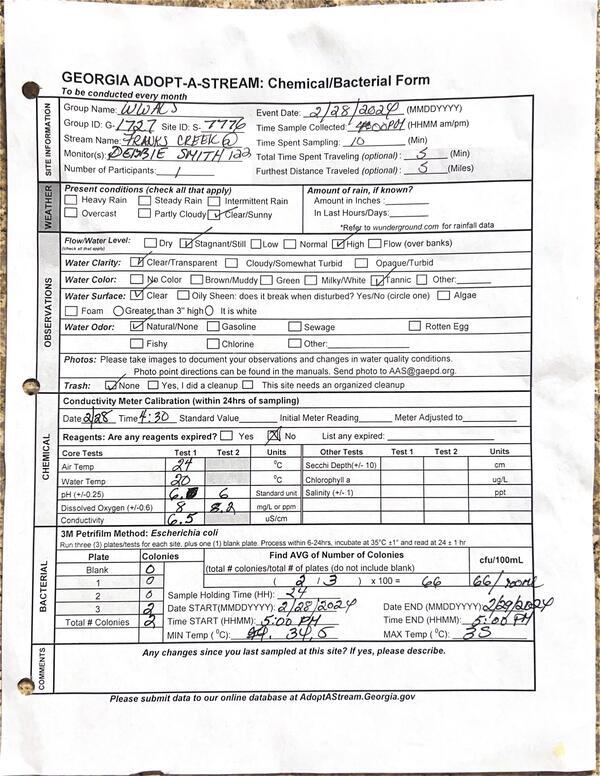 GEORGIA ADOPT-A-STREAM: Chemical/Bacterial Form
To be conducted every month
SITE INFORMATION
Group Name: WWALS Event Date: 2/28/2024 (MMDDYYYY)
Group ID: G-1727 Site ID: S-7776 Time Sample Collected: 4:00PM (HHMM am/pm)
Stream Name: FRANKS CREEK @ Time Spent Sampling: 10 (Min)
Monitor(s): DEBBIE SMITH 122 Total Time Spent Traveling (optional): 5 (Min)
Number of Participants: 1 Furthest Distance Traveled (optional): 5 (Miles)
WEATHER
Present conditions (check all that apply) Amount of rain, if known?
Heavy Rain Steady Rain Intermittent Rain Amount in Inches :
Overcast Partly Cloudy Clear/Sunny In Last Hours/Days:
*Refer to wunderground.com for rainfall data
OBSERVATIONS
Flow/Water Level: Dry Stagnant/Still Low Normal High Flow (over banks)
(check all that apply)
Water Clarity: Clear/Transparent Cloudy/Somewhat Turbid Opaque/Turbid
Water Color: No Color Brown/Muddy Green Milky/White Tannic Other:
Water Surface: Clear Oily Sheen: does it break when disturbed? Yes/No (circle one) Algae
Foam Greater than 3" high It is white
Water Odor: Natural/None Gasoline Sewage Rotten Egg
Fishy Chlorine Other:
Photos: Please take images to document your observations and changes in water quality conditions.
Photo point directions can be found in the manuals. Send photo to AAS@gaepd.org.
Trash: None Yes, I did a cleanup This site needs an organized cleanup
CHEMICAL
Conductivity Meter Calibration (within 24hrs of sampling)
Date 2/28 Time 4:30 Standard Value Initial Meter Reading Meter Adjusted to
Reagents: Are any reagents expired? Yes No List any expired:
Core Tests Test 1 Test 2 Units Other Tests Test 1 Test 2 Units
Air Temp 24 °C Secchi Depth(+/- 10) cm
Water Temp 20 °C Chlorophyll a ug/L
pH (+/-0.25) 6 Standard unit Salinity (+/- 1) ppt
Dissolved Oxygen (+/-0.6) 8 8.2 mg/L or ppm
Conductivity 6.5 uS/cm
BACTERIAL
3M Petrifilm Method: Escherichia coli
Run three (3) plates/tests for each site, plus one (1) blank plate. Process within 6-24hrs, incubate at 35°C ±1° and read at 24 ± 1 hr
Plate Colonies Find AVG of Number of Colonies cfu/100mL
Blank 0 (total # colonies/total # of plates (do not include blank)
1 0 ( 2 / 3 ) x 100 = 66 66/100mL
2 0 Sample Holding Time (HH): 24
3 2 Date START(MMDDYYYY): 2/28/2024 Date END (MMDDYYYY): 2/29/2024
Total # Colonies 2 Time START (HHMM): 5:00 PM Time END (HHMM): 5:00 PM
MIN Temp (°C): 34.5 MAX Temp (°C): 35
COMMENTS
Any changes since you last sampled at this site? If yes, please describe.
Please submit data to our online database at AdoptAStream.Georgia.gov